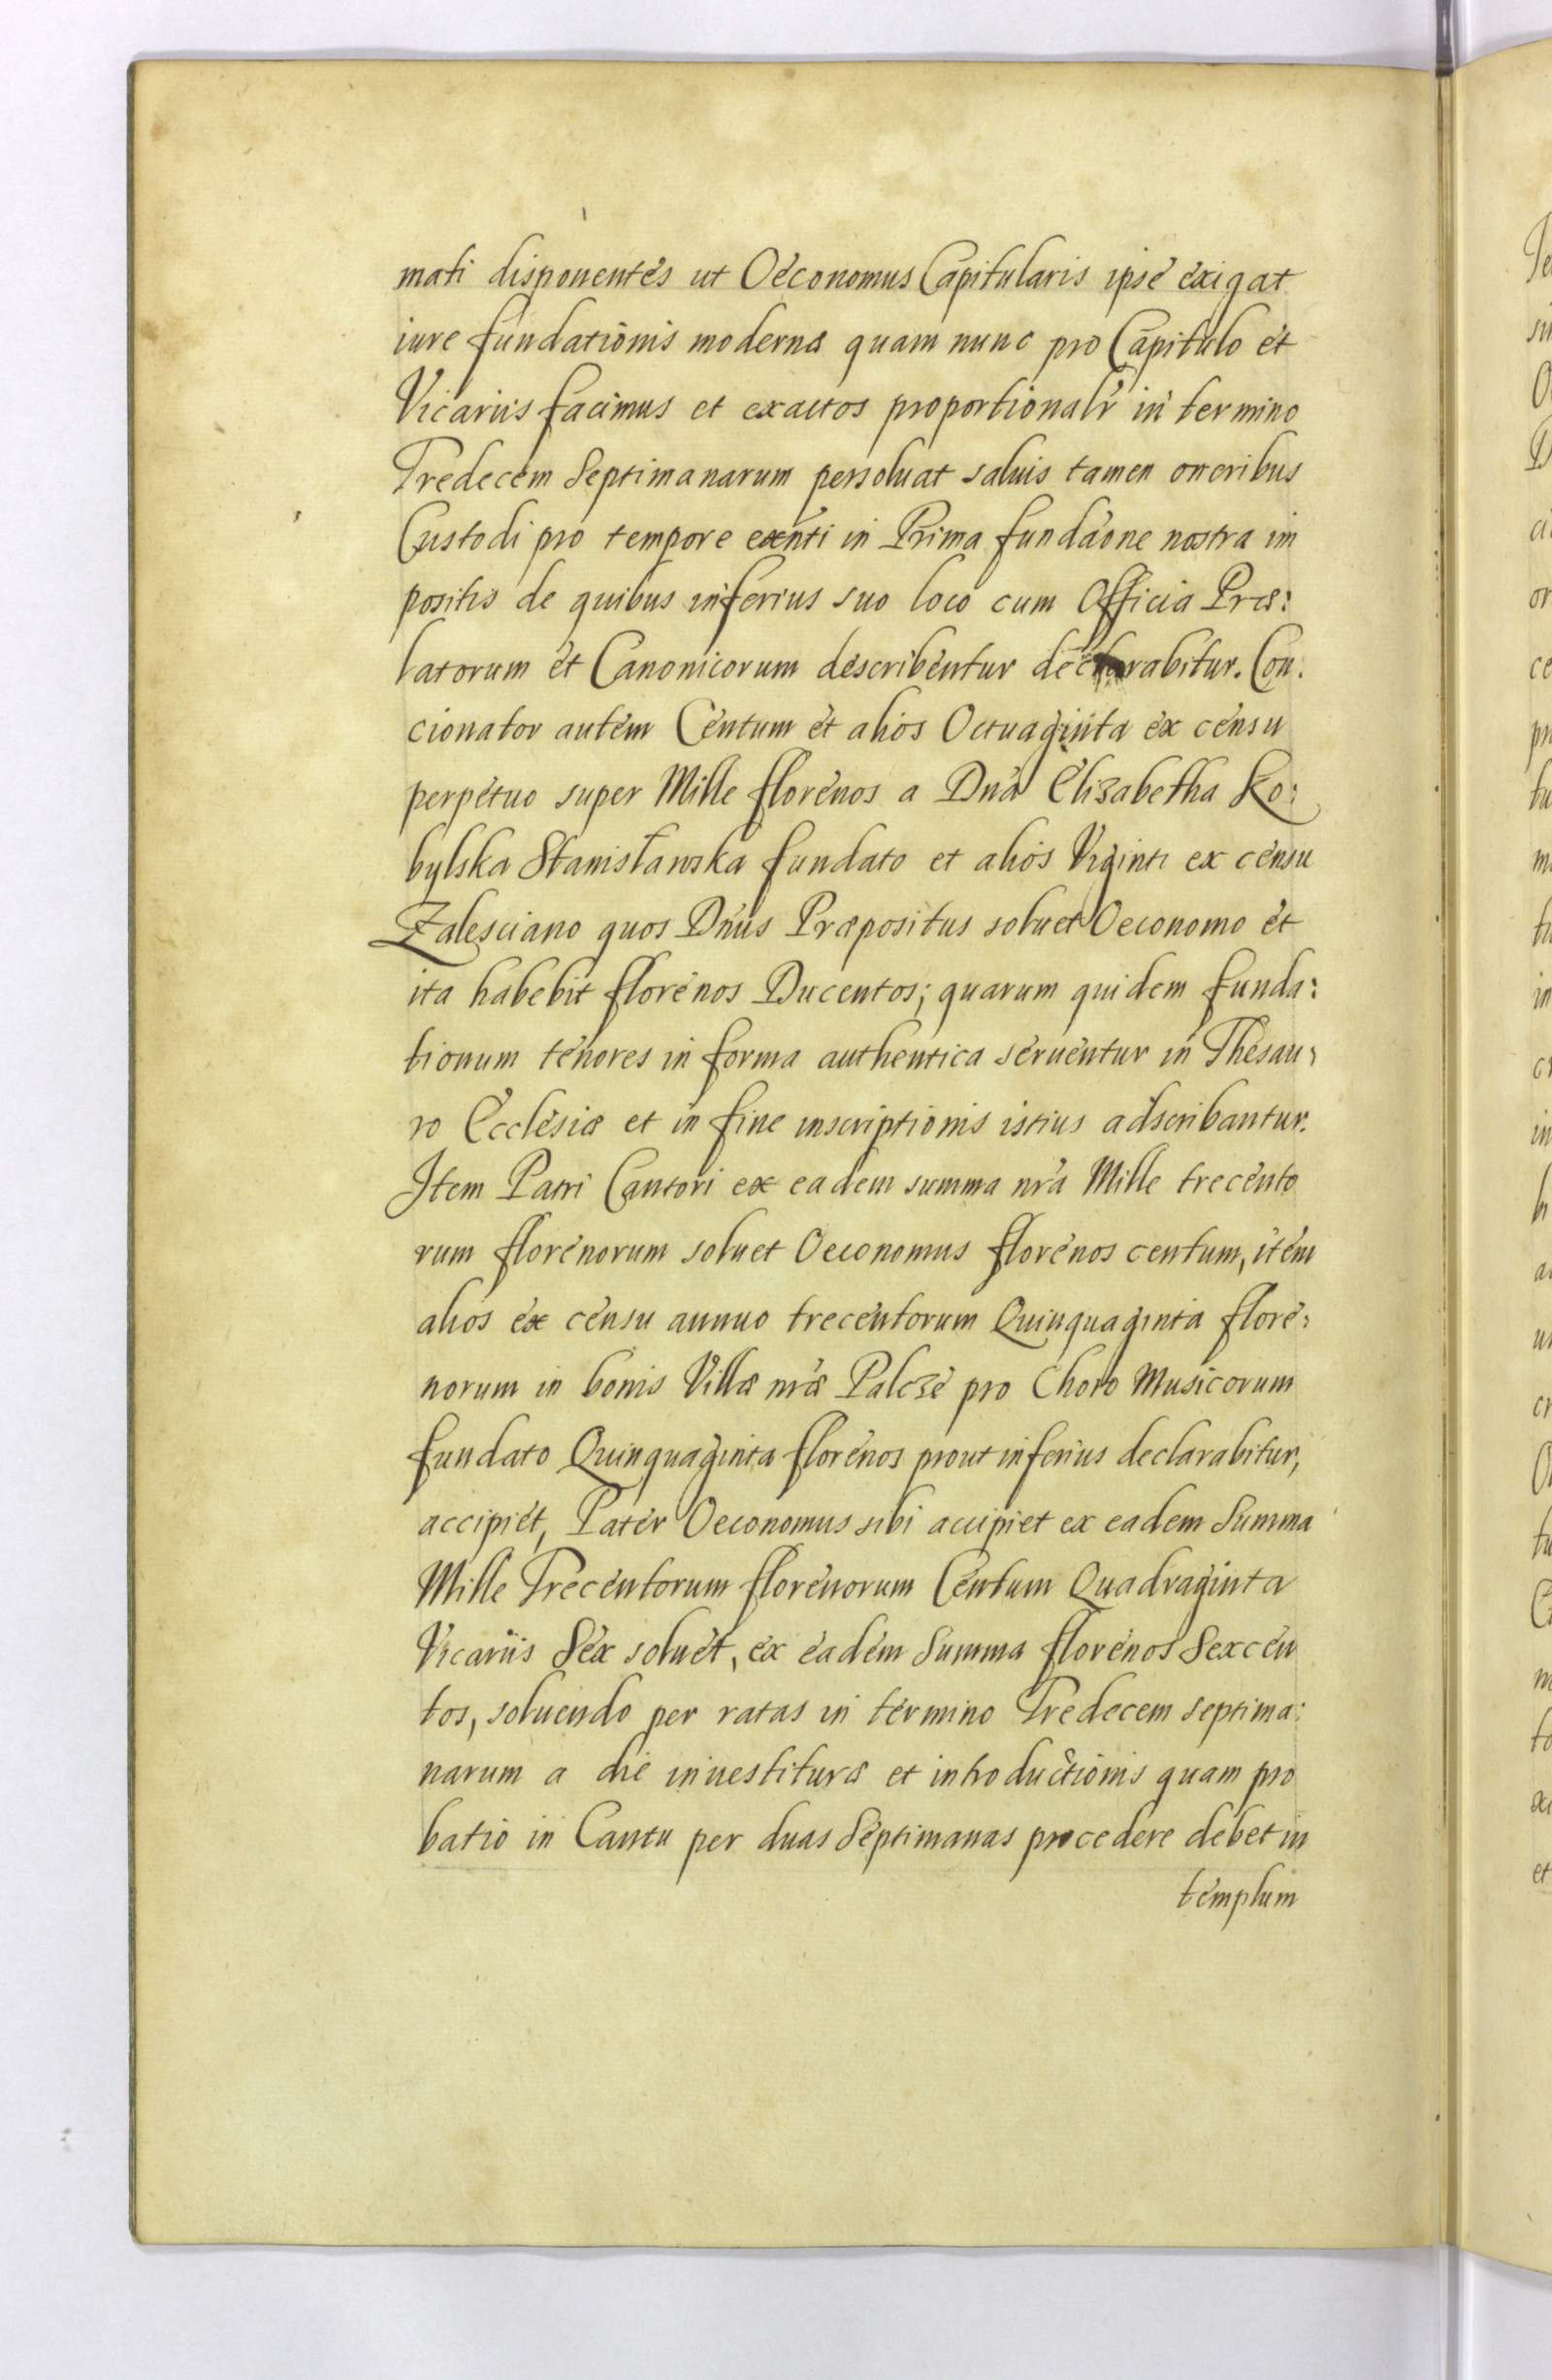 mati disponentes ut Oeconomus Capitularis ipse exigat
iure fundationis modernæ quam nunc pro Capitulo et
Vicariis facimus et exactos proportionalr in termino
Tredecem Septimanarum persoluat saluis tamen oneribus
Custodi pro tempore exñti in Prima fundãone nostra im
positis de quibus inferius suo loco cum Officia Præ:
latorum et Canonicorum describentur declarabitur. Con:
cionator autem Centum et alios Octuaginta ex censu
perpetuo super Mille florenos a Dñá Elizabetha Ko:
bylska Stanisławska fundato et alios Viginti ex censu
Zalesciano quos Dñus Præpositus soluet Oeconomo et
ita habebit florenos Ducentos; quarum quidem funda:
tionum tenores in forma authentica seruentur in Thesau:
ro Ecclesiæ et in fine inscriptionis istius adscribantur.
Item Patri Cantori ex eadem summa nrá Mille trecento
rum florenorum soluet Oeconomus florenos centum, item
alios ex censu annuo trecentorum Quinquaginta flore:
norum in bonis Villæ nræ Palcze pro Choro Musicorum
fundato Quinquaginta florenos prout inferius declarabitur,
accipiet, Pater Oeconomus sibi accipiet ex eadem Summa
Mille Trecentorum florenorum Centum Quadraginta
Vicariis Sex soluet, ex eadem Summa florenos Sexcen
tos, soluendo per ratas in termino Tredecem septima:
narum a die inuestituræ et introductionis quam pro
batio in Cantu per duas Septimanas procedere debet in
templum